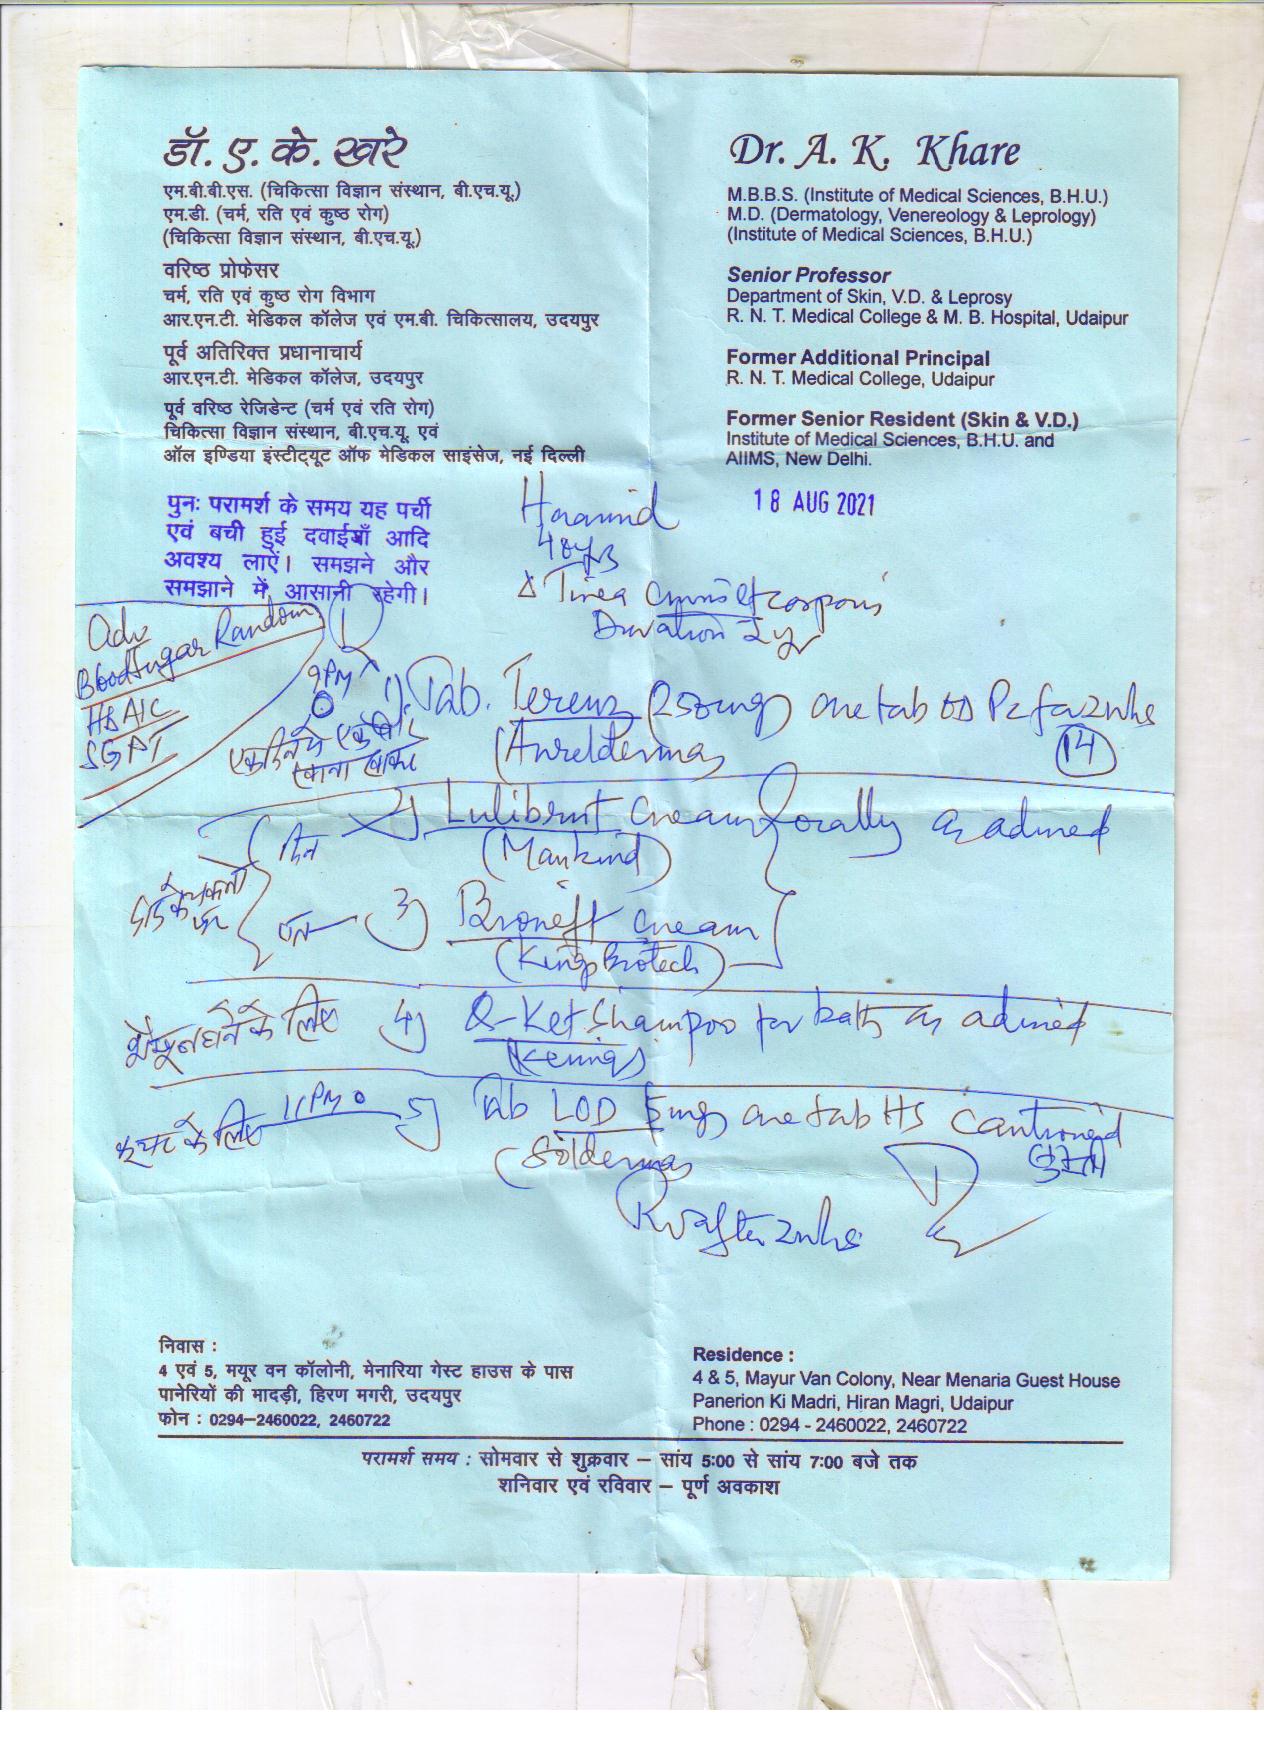 डॉ. ए. के. खरे
एम.बी.बी.एस. (चिकित्सा विज्ञान संस्थान, बी.एच.यू.)
एम.डी. (चर्म, रति एवं कुष्ठ रोग)
(चिकित्सा विज्ञान संस्थान, बी.एच.यू.)
वरिष्ठ प्रोफेसर
चर्म, रति एवं कुष्ठ रोग विभाग
आर.एन.टी. मेडिकल कॉलेज एवं एम.बी. चिकित्सालय, उदयपुर
पूर्व अतिरिक्त प्रधानाचार्य
आर.एन.टी. मेडिकल कॉलेज, उदयपुर
पूर्व वरिष्ठ रेजिडेन्ट (चर्म एवं रति रोग)
चिकित्सा विज्ञान संस्थान, बी.एच.यू. एवं
ऑल इण्डिया इंस्टीट्यूट ऑफ मेडिकल साइंसेज, नई दिल्ली
Dr. A. K. Khare
M.B.B.S. (Institute of Medical Sciences, B.H.U.)
M.D. (Dermatology, Venereology & Leprology)
(Institute of Medical Sciences, B.H.U.)
Senior Professor
Department of Skin, V.D. & Leprosy
R. N. T. Medical College & M. B. Hospital, Udaipur
Former Additional Principal
R. N. T. Medical College, Udaipur
Former Senior Resident (Skin & V.D.)
Institute of Medical Sciences, B.H.U. and
AIIMS, New Delhi.
पुनः परामर्श के समय यह पर्ची
एवं बची हुई दवाईयाँ आदि
अवश्य लाऐं। समझने और
समझाने में आसानी रहेगी।
18 AUG 2021
48yrs
Δ Tinea cruris et corporis
Duration 2yr
Adv
Blood Sugar Random
HBA1C
SGPT
9PM
1) Tab. (250mg) one tab OD Pc for 2wks
14
एक दिन में
खाना खाकर
दिन 2) cream locally as advised
(Mankind)
3) cream
(Kings Biotech)
के लिए 4) Q-Ket Shampoo for bath as advised
11PM 5) Tab LOD 5mg one tab HS
के लिए
R/v after 2wks
निवास :
4 एवं 5, मयूर वन कॉलोनी, मेनारिया गेस्ट हाउस के पास
पानेरियों की मादड़ी, हिरण मगरी, उदयपुर
फोन : 0294–2460022, 2460722
Residence :
4 & 5, Mayur Van Colony, Near Menaria Guest House
Panerion Ki Madri, Hiran Magri, Udaipur
Phone : 0294 - 2460022, 2460722
परामर्श समय : सोमवार से शुक्रवार – सांय 5:00 से सांय 7:00 बजे तक
शनिवार एवं रविवार – पूर्ण अवकाश